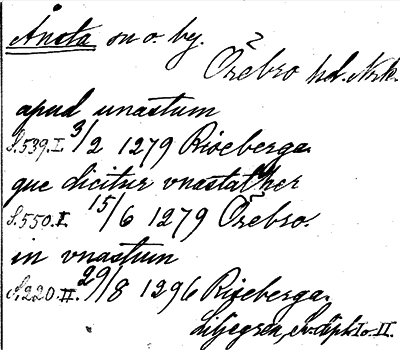 Ånsta sn o. by.
Örebro hd. Nrk.
apud unastum
S. 539. I 3/2 1279 Riseberga.
que dicitur vnastather
S. 550. I. 15/6 1279 Örebro.
in vnastum
S. 220. II. 29/8 1296 Riseberga.
Liljegren, sv. dipl. I o. II.